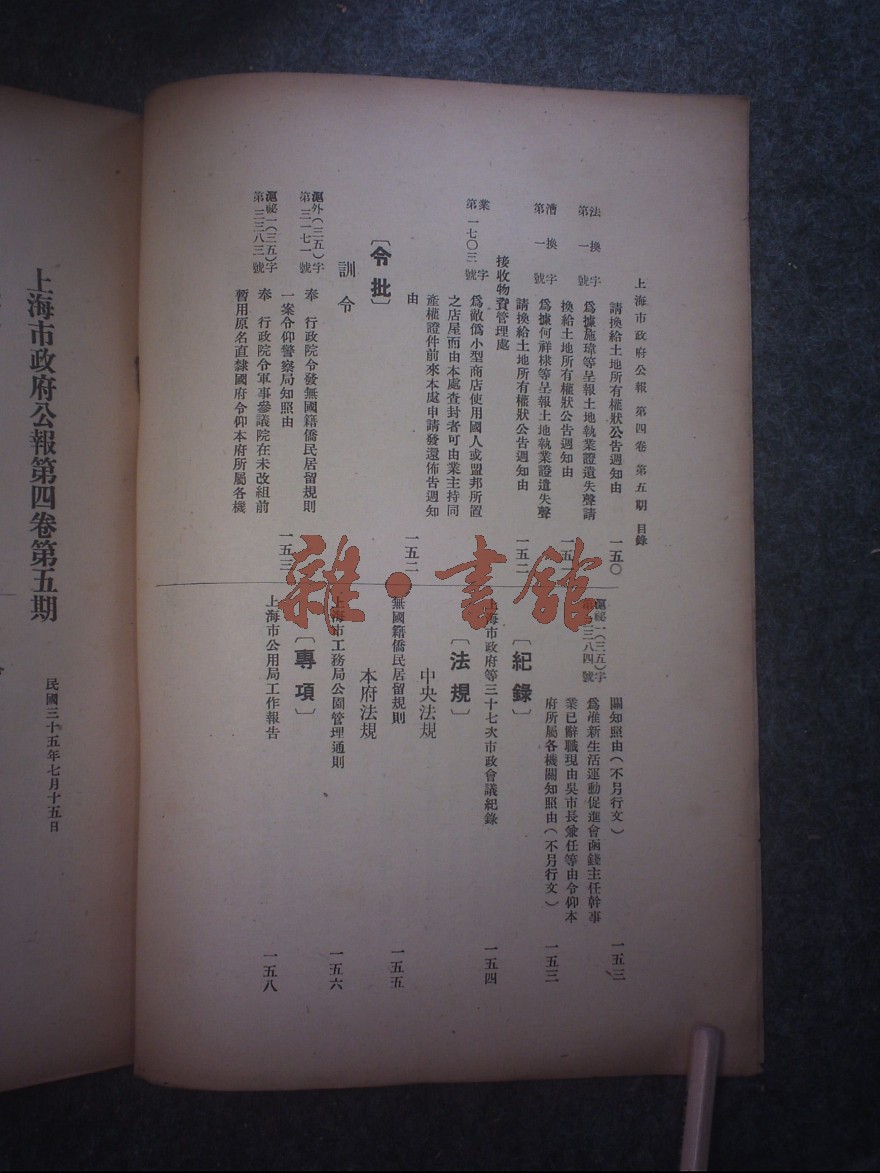 上海市政府公報 第四卷 第五期 目錄
請換給土地所有權狀公告週知由 一五〇
法換字第一號
爲據施瑋等呈報土地執業證遺失聲請
換給土地所有權狀公告週知由 一五
漕換字第一號
爲據何祥棣等呈報土地執業證遺失聲
請換給土地所有權狀公告週知由 一五二
接收物資管理處
業字第一七〇三號
爲敵僞小型商店使用國人或盟邦所置
之店屋而由本處查封者可由業主持同
產權證件前來本處申請發還佈告週知
由 一五二
〔令批〕
訓令
滬外(三五)字第三一七一號
奉 行政院令發無國籍僑民居留規則
一案令仰警察局知照由 一五三
滬祕一(三五)字第三三八三號
奉 行政院令軍事參議院在未改組前
暫用原名直隸國府令仰本府所屬各機
關知照由(不另行文) 一五三
滬祕一(三五)字第三三八四號
爲准新生活運動促進會函錢主任幹事
業已辭職現由吳市長兼任等由令仰本
府所屬各機關知照由(不另行文) 一五三
〔紀錄〕
上海市政府等三十七次市政會議紀錄 一五四
〔法規〕
中央法規
無國籍僑民居留規則 一五五
本府法規
上海市工務局公園管理通則 一五六
〔專項〕
上海市公用局工作報告 一五八
上海市政府公報第四卷第五期
民國三十五年七月十五日
雜·書館